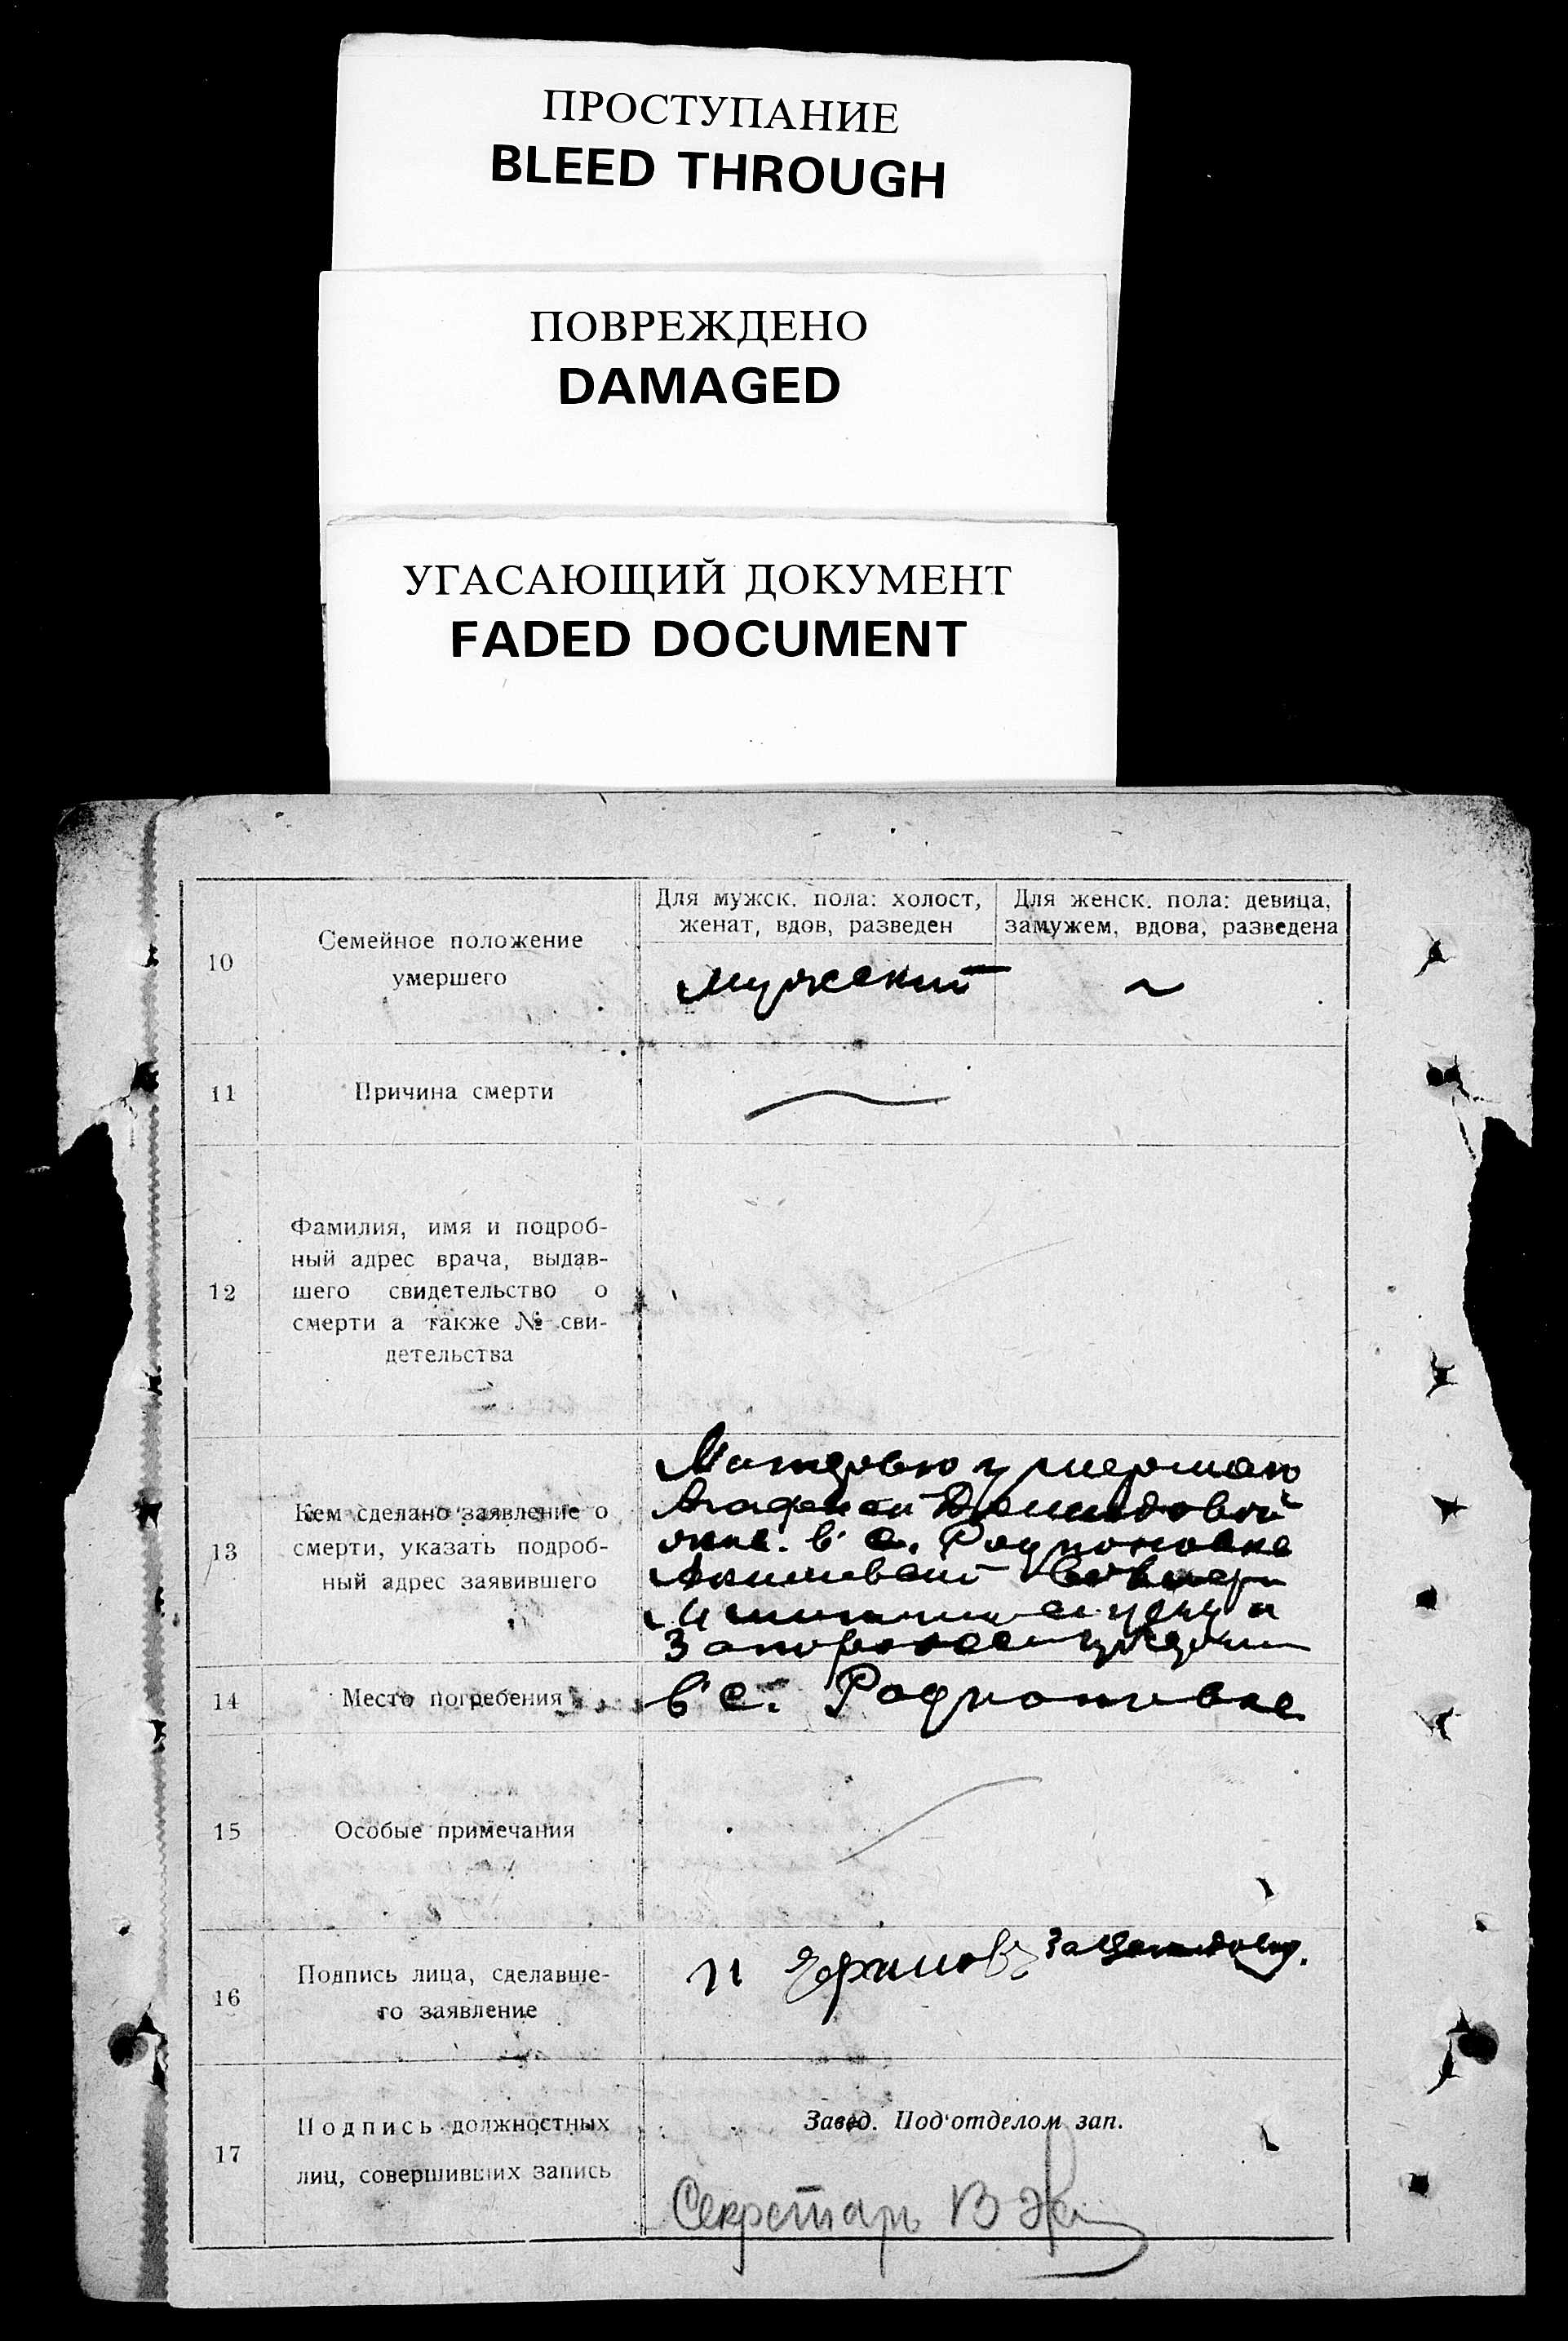 ПРОСТУПАНИЕ
BLEED THROUGH
ПОВРЕЖДЕНО
DAMAGED
УГАСАЮЩИЙ ДОКУМЕНТ
FADED DOCUMENT
10
Семейное положение
умершего
Для мужск. пола: холост,
женат, вдов, разведен
Для женск. пола: девица,
замужем, вдова, разведена
мужский
11
Причина смерти
12
Фамилия, имя и подроб-
ный адрес врача, выдав-
шего свидетельство о
смерти а также № сви-
детельства
13
Кем сделано заявление о
смерти, указать подроб-
ный адрес заявившего
Демидовой
в с. Родионовке
14
Место погребения
в с. Родионовке
15
Особые примечания
16
Подпись лица, сделавше-
го заявление
за
17
Подпись должностных
лиц, совершивших запись
Завед. Под'отделом зап.
Секретарь В